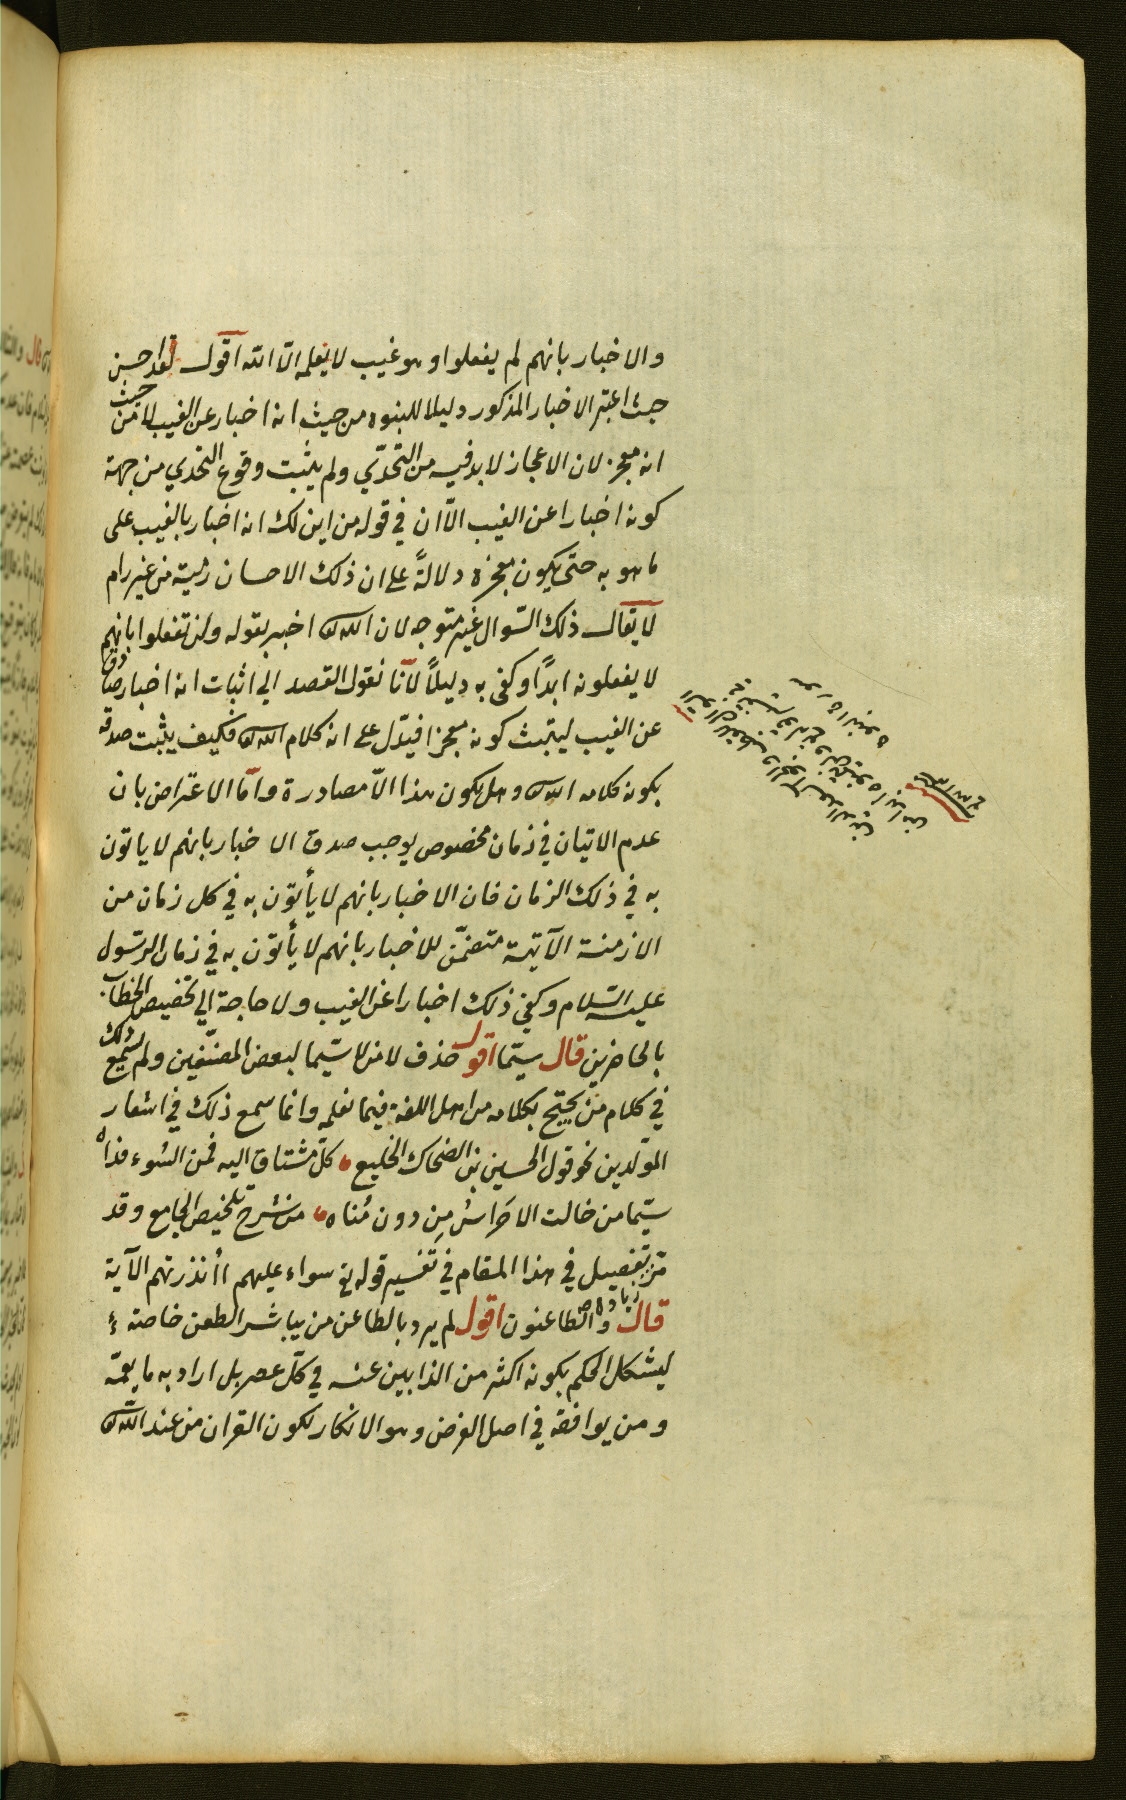 والاخبار بانهم لم يفعلوا وهو غيب لا يعلمه الا الله اقول لقد احسن
حيث اعتبر الاخبار المذكور دليلا للنبوة من حيث انه اخبار عن الغيب لا من حيث
انه معجز لان الاعجاز لا بد فيه من التحدّي ولم يثبت وقوع التحدي من جهة
كونه اخبارا عن الغيب الّا ان في قوله من اين لك انه اخبار بالغيب على
ما هو به حتى يكون معجزة دلالةً على ان ذلك الاحسان رمية من غير رام
لا يقال ذلك السّوال غير متوجه لان الله اخبر بقوله ولن تفعلوا بانهم
لا يفعلونه ابدًا وكفى به دليلاً لانّا نقول القصد الى اثبات انه اخبار صادق
عن الغيب ليثبت كونه معجزا فيدّل على انه كلام الله فكيف يثبت صدقه
بكونه كلام الله وهل يكون هذا الّا مصادرة وامّا الاعتراض بان
عدم الاتيان في زمان مخصوص يوجب صدق الاخبار بانهم لا ياتون
به في ذلك الزمان فان الاخبار بانهم لا يأتون به في كل زمان من
الازمنة الآتية متضمّن للاخبار بانهم لا يأتون به في زمان الرسّول
عليه السّلام وكفى ذلك اخبارا عن الغيب ولا حاجة الى تخصيص الخطاب
بالحاضرين قال سيّما اقول حذف لا من لا سيّما لبعض المصنّفين ولم يسمع ذلك
في كلام من يحتج بكلامه من اهل اللغة فيما نعلمه وانما سمع ذلك في اشعار
المولّدين نحو قول الحسين بن الضحاك الخليع كلّ مشتاق اليه فمن السُوء فداه
سيّما من حالت الاحراسُ مِن دون مُناه من شرح تلخيص الجامع وقد
مرّ تفصيل في هذا المقام في تفسير قوله تع سواء عليهم أأنذرتهم الآية
قال والطاعنون اقول لم يرد بالطاعن من يباشر الطعن خاصة
ليشكل الحكم بكونه اكثر من الذابين عنه في كلّ عصر بل اراد به ما يعمّه
ومن يوافقه في اصل الغرض وهو الانكار لكون القران من عند الله